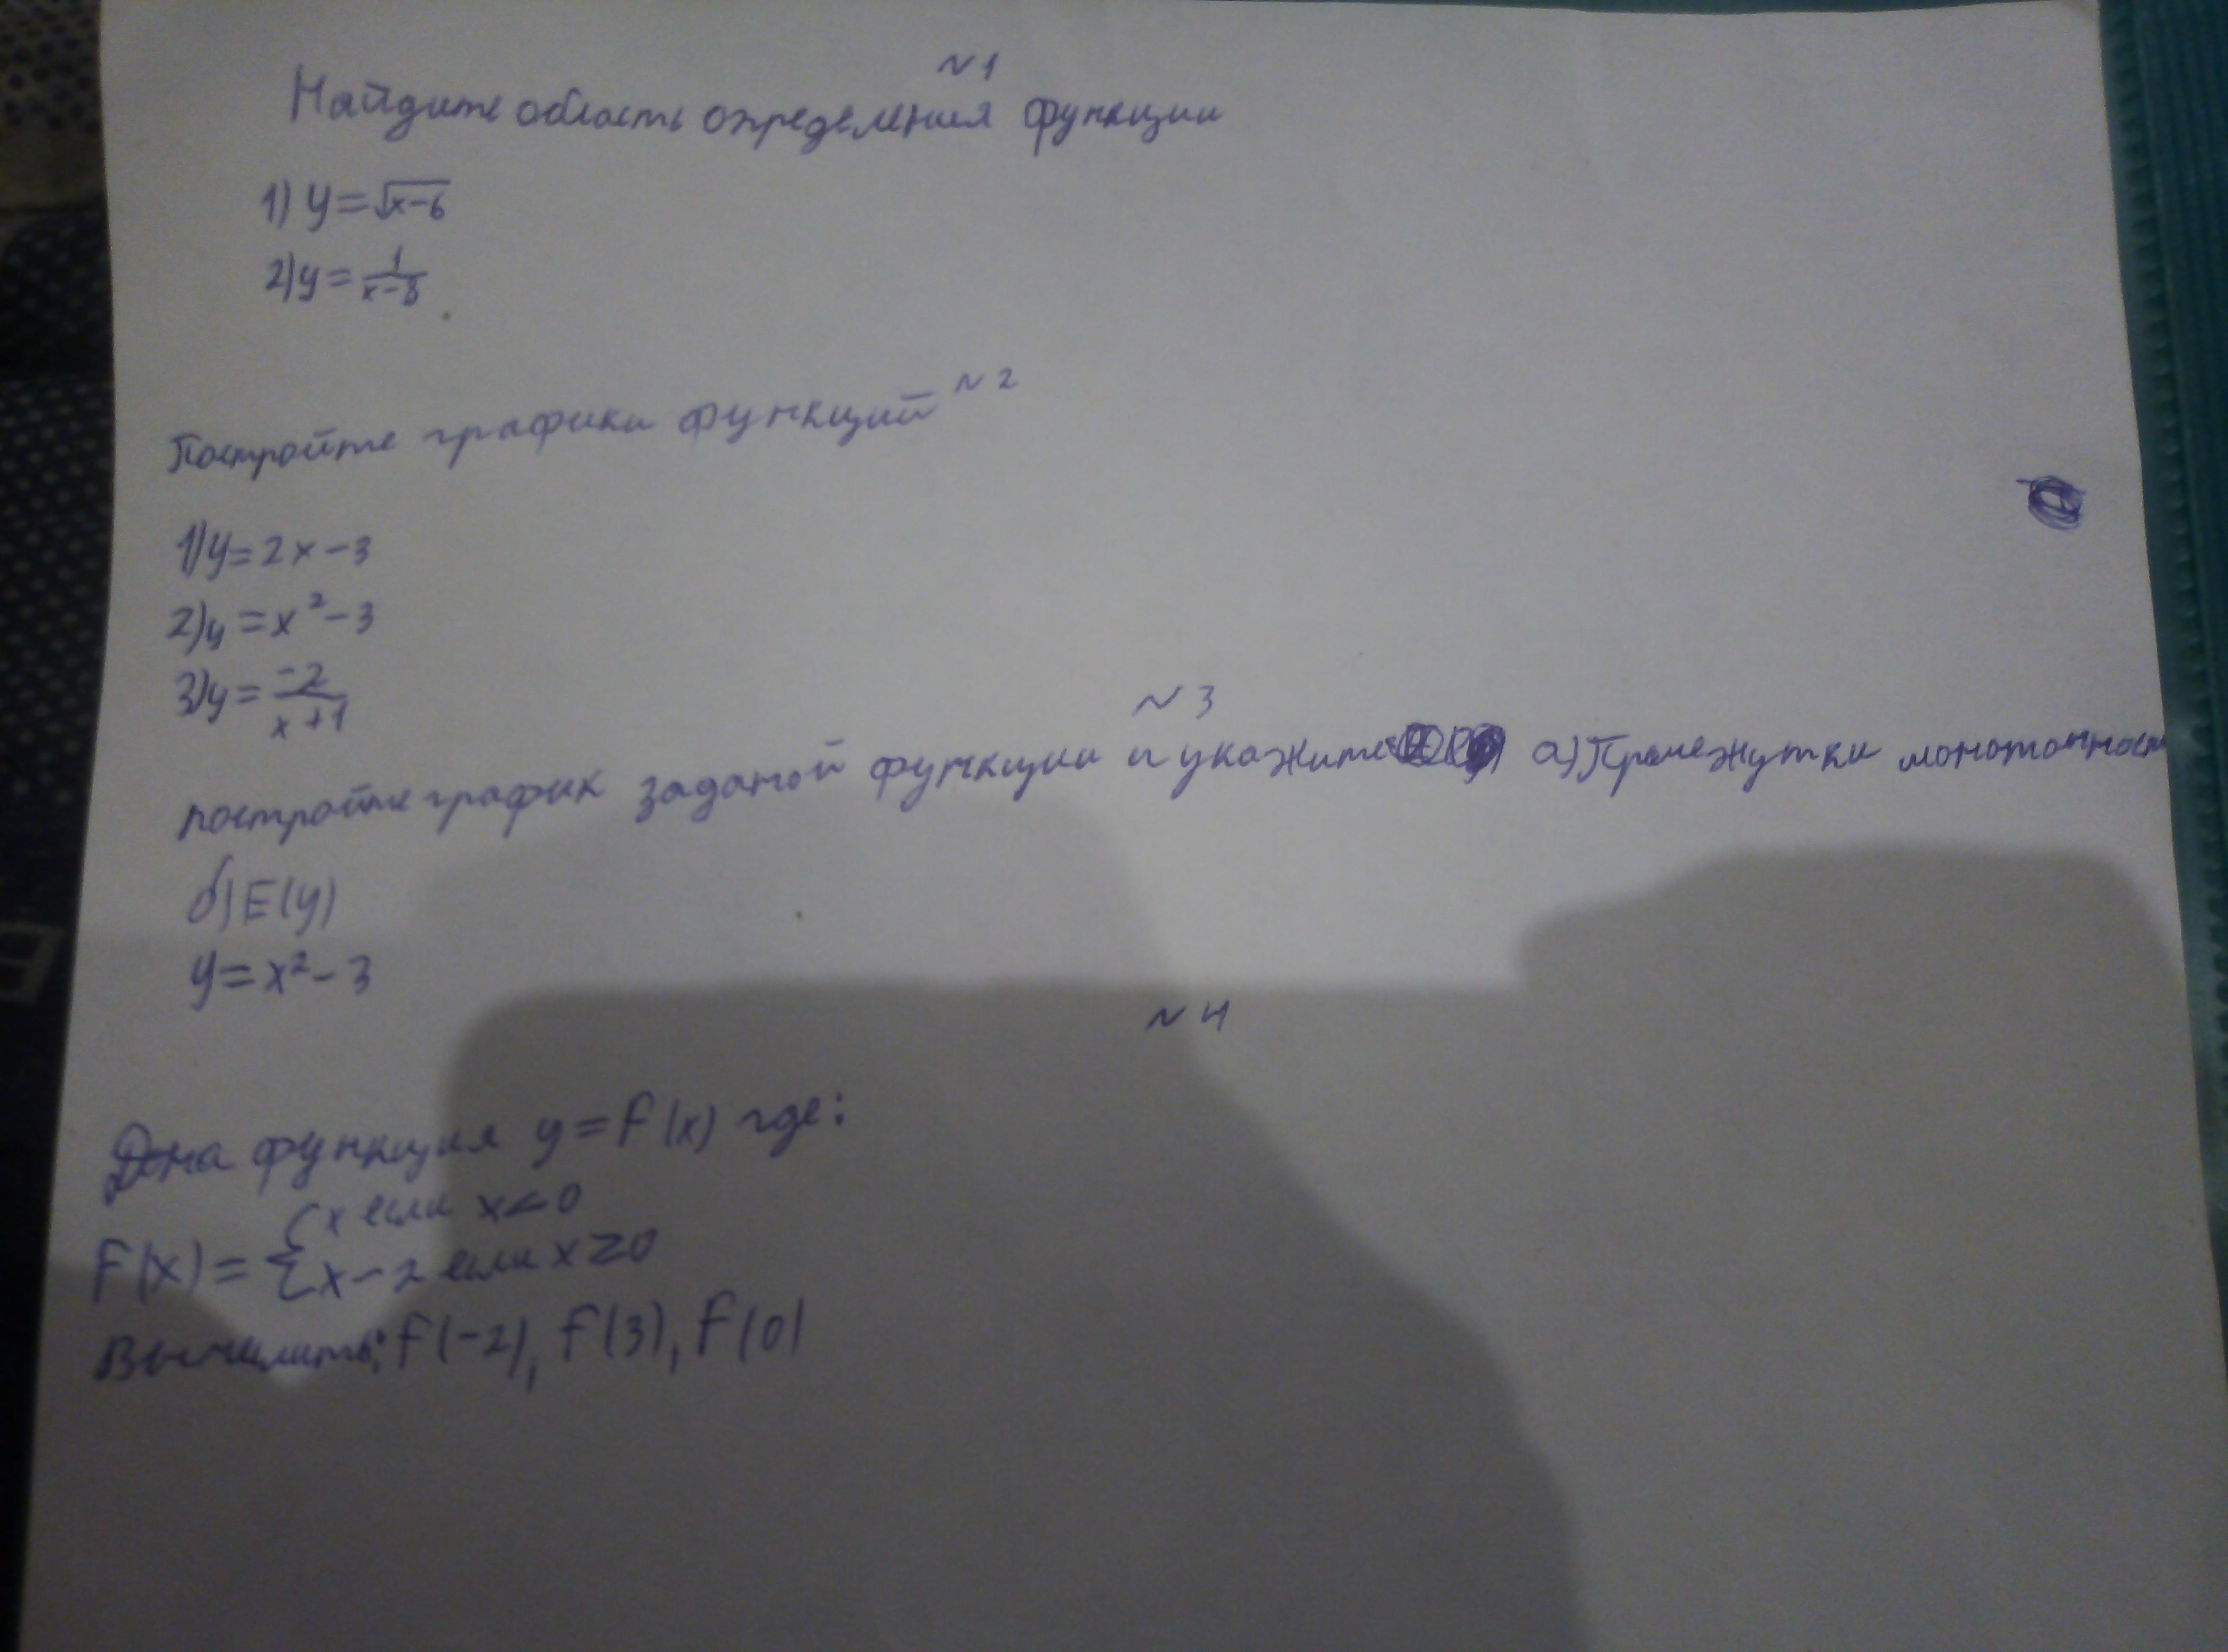 №1
Найдите область определения функции
1) y=√x-6
2) y=1/x-8
№2
Постройте графики функций
1) y=2x-3
2) y=x²-3
3) y=-2/x+1
№3
постройте график заданой функции и укажите а) Промежутки монотонност
б) E(y)
y=x²-3
№4
Дана функция y=f(x) где:
f(x)={x если x<0
{x-2 если x≥0
Вычислить: f(-2), f(3), f(0)